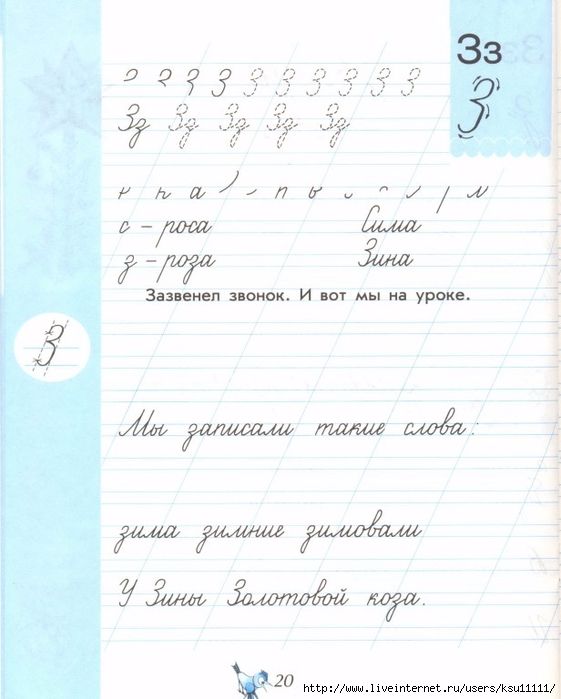 Зз
З
З З З З З З З З З З
Зз Зз Зз Зз Зз
с – роса Сима
з – роза Зина
Зазвенел звонок. И вот мы на уроке.
З
Мы записали такие слова:
зима зимние зимовали
У Зины Золотовой коза.
20
http://www.liveinternet.ru/users/ksu11111/